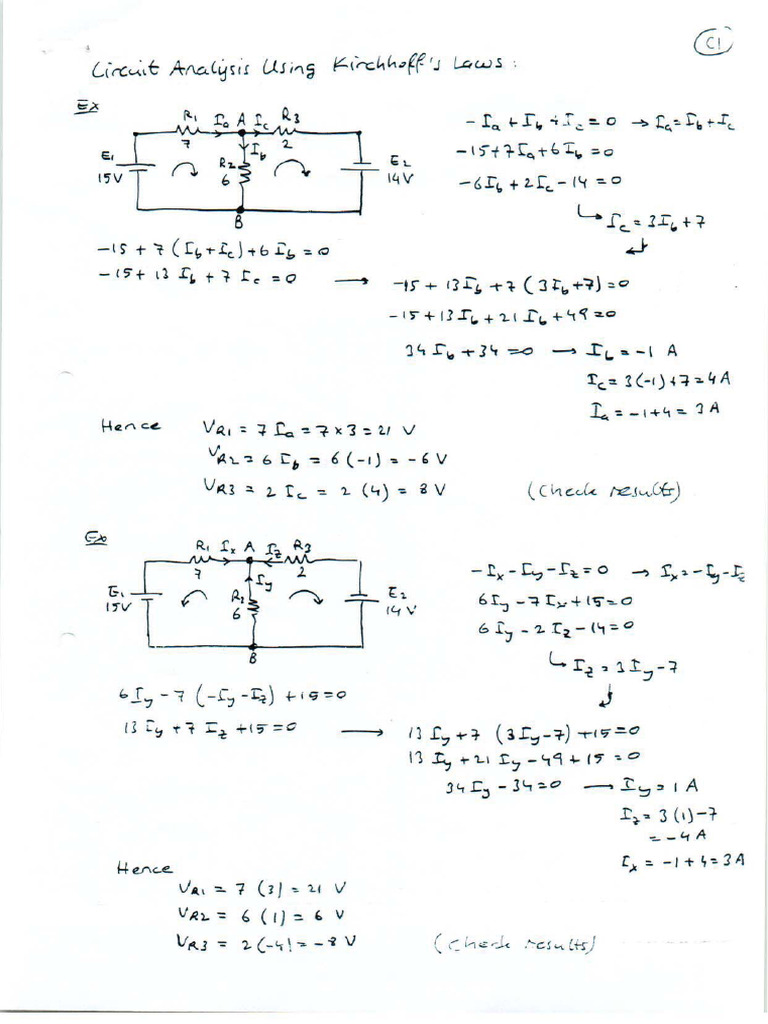 C1
Circuit Analysis Using Kirchhoff's Laws:
Ex
R1 Ia A Ic R3
7 2
Ib
E1 R2 E2
15V 6 14V
B
-Ia + Ib + Ic = 0 → Ia = Ib + Ic
-15 + 7Ia + 6Ib = 0
-6Ib + 2Ic - 14 = 0
↳ Ic = 3Ib + 7
-15 + 7 (Ib + Ic) + 6 Ib = 0
-15 + 13 Ib + 7 Ic = 0 → -15 + 13Ib + 7 (3Ib + 7) = 0
-15 + 13Ib + 21 Ib + 49 = 0
34 Ib + 34 = 0 → Ib = -1 A
Ic = 3(-1) + 7 = 4A
Ia = -1 + 4 = 3 A
Hence VR1 = 7 Ia = 7 × 3 = 21 V
VR2 = 6 Ib = 6 (-1) = -6 V
VR3 = 2 Ic = 2 (4) = 8 V (Check results)
Ex
R1 Ix A Iz R3
7 2
Iy
E1 R2 E2
15V 6 14V
B
-Ix - Iy - Iz = 0 → Ix = -Iy - Iz
6Iy - 7Ix + 15 = 0
6 Iy - 2 Iz - 14 = 0
↳ Iz = 3Iy - 7
6Iy - 7 (-Iy - Iz) + 15 = 0
13 Iy + 7 Iz + 15 = 0 → 13 Iy + 7 (3Iy - 7) + 15 = 0
13 Iy + 21 Iy - 49 + 15 = 0
34 Iy - 34 = 0 → Iy = 1 A
Iz = 3 (1) - 7
= -4 A
Ix = -1 + 4 = 3 A
Hence
VR1 = 7 (3) = 21 V
VR2 = 6 (1) = 6 V
VR3 = 2 (-4) = -8 V (Check results)